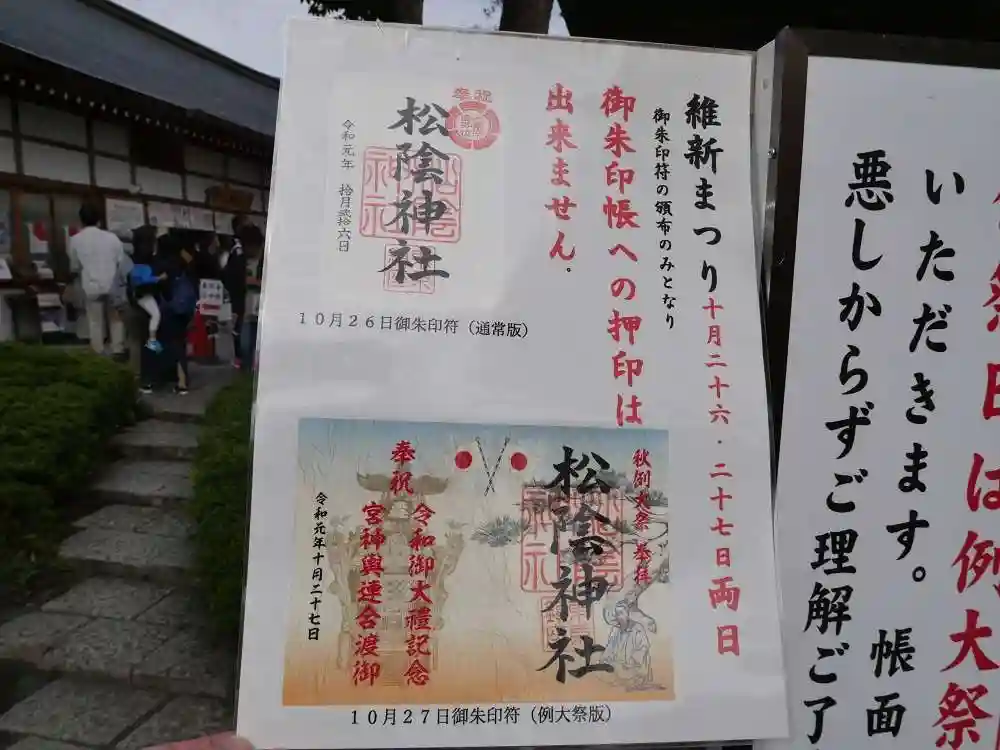 維新まつり 十月二十六・二十七日両日
御朱印符の頒布のみとなり
御朱印帳への押印は
出来ません.
奉祝
松陰神社
令和元年 拾月弐拾六日
10月26日御朱印符（通常版）
秋例大祭 奉拝
松陰神社
奉祝 令和御大禮記念
宮神輿連合渡御
令和元年十月二十七日
10月27日御朱印符（例大祭版）
日は例大祭
いただきます。帳面
悪しからずご理解ご了